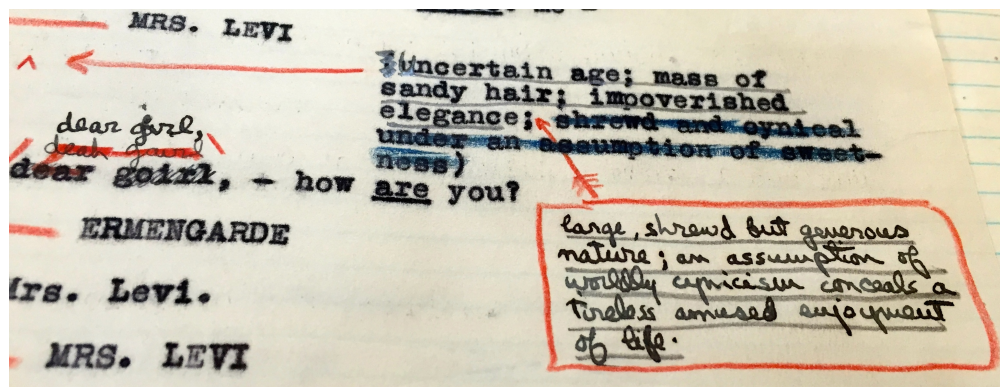 MRS. LEVI
(Uncertain age; mass of
sandy hair; impoverished
elegance; shrewd and cynical
under an assumption of sweet-
ness)
dear girl,
dear goirl, - how are you?
large, shrewd but generous
nature; an assumption of
worldly cynicism conceals a
tireless amused enjoyment
of life.
ERMENGARDE
Mrs. Levi.
MRS. LEVI